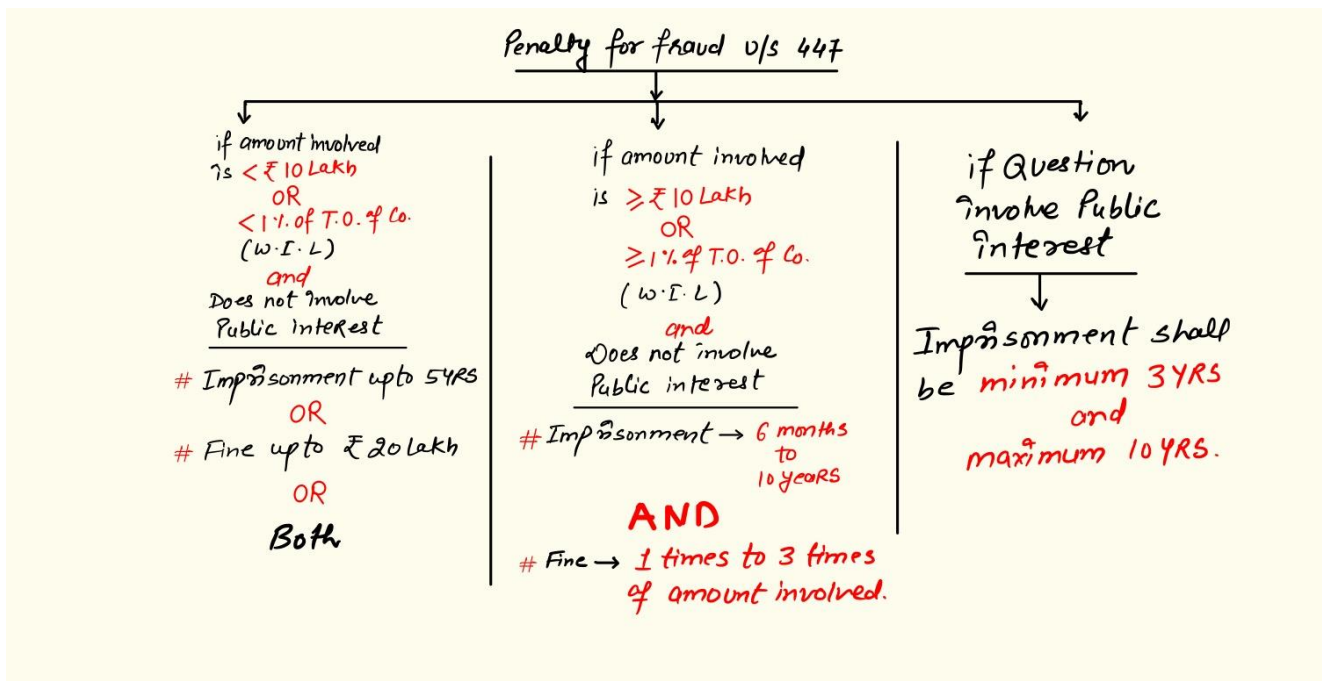 Penalty for fraud U/S 447
if amount involved
is < ₹ 10 Lakh
OR
< 1 % of T.O. of Co.
(W.I.L)
and
Does not involve
Public interest
# Imprisonment upto 5 YRS
OR
# Fine up to ₹ 20 Lakh
OR
Both
if amount involved
is ≥ ₹ 10 Lakh
OR
≥ 1 % of T.O. of Co.
(W.I.L)
and
Does not involve
Public interest
# Imprisonment → 6 months
to
10 years
AND
# Fine → 1 times to 3 times
of amount involved.
if Question
involve Public
interest
Imprisonment shall
be minimum 3 YRS
and
maximum 10 YRS.